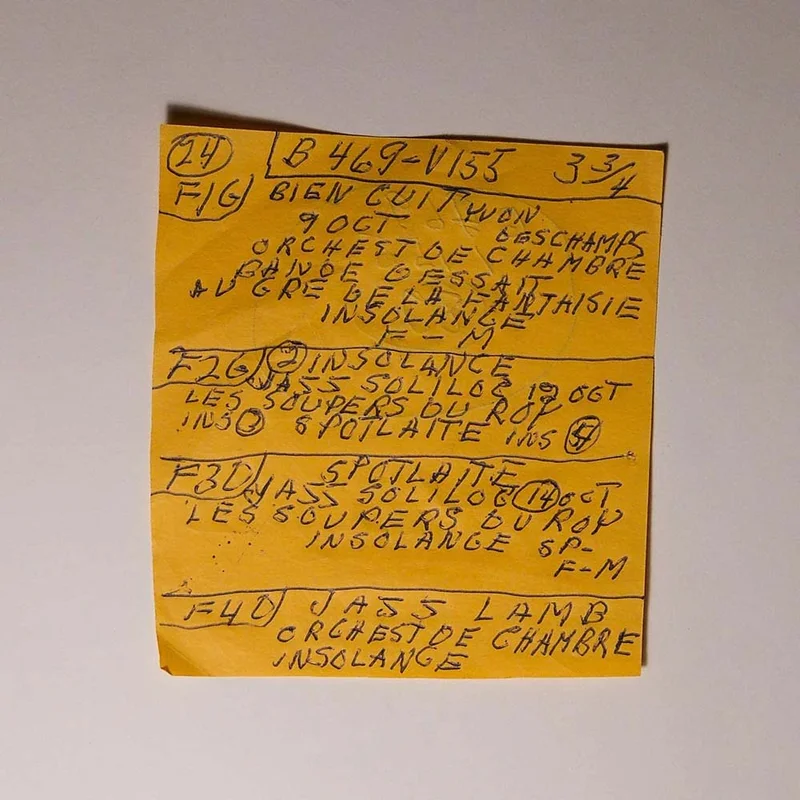 24 B 469-V155 3 3/4
F1G BIEN CUIT YVON
9 OCT DESCHAMPS
ORCHEST DE CHAMBRE
BANDE DESSAIT
AU GRE DE LA FANTAISIE
INSOLANGE
F-M
F2G 2 INSOLANCE
JASS SOLILOC 12 OCT
LES SOUPERS DU ROY
INS SPOTLAITE INS
F3D SPOTLAITE
JASS SOLILOC 14 OCT
LES SOUPERS DU ROY
INSOLANGE SP-
F-M
F4D JASS LAMB
ORCHEST DE CHAMBRE
INSOLANGE